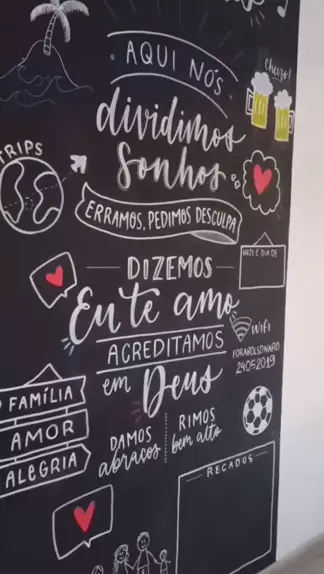 AQUI NÓS
Cheers!
dividimos
TRIPS
sonhos
ERRAMOS, PEDIMOS DESCULPA
HOJE É DIA DE
DIZEMOS
Eu te amo
WiFi
FORABOLSONARO
24052019
ACREDITAMOS
em Deus
FAMÍLIA
AMOR
ALEGRIA
DAMOS
abraços
RIMOS
bem alto
RECADOS